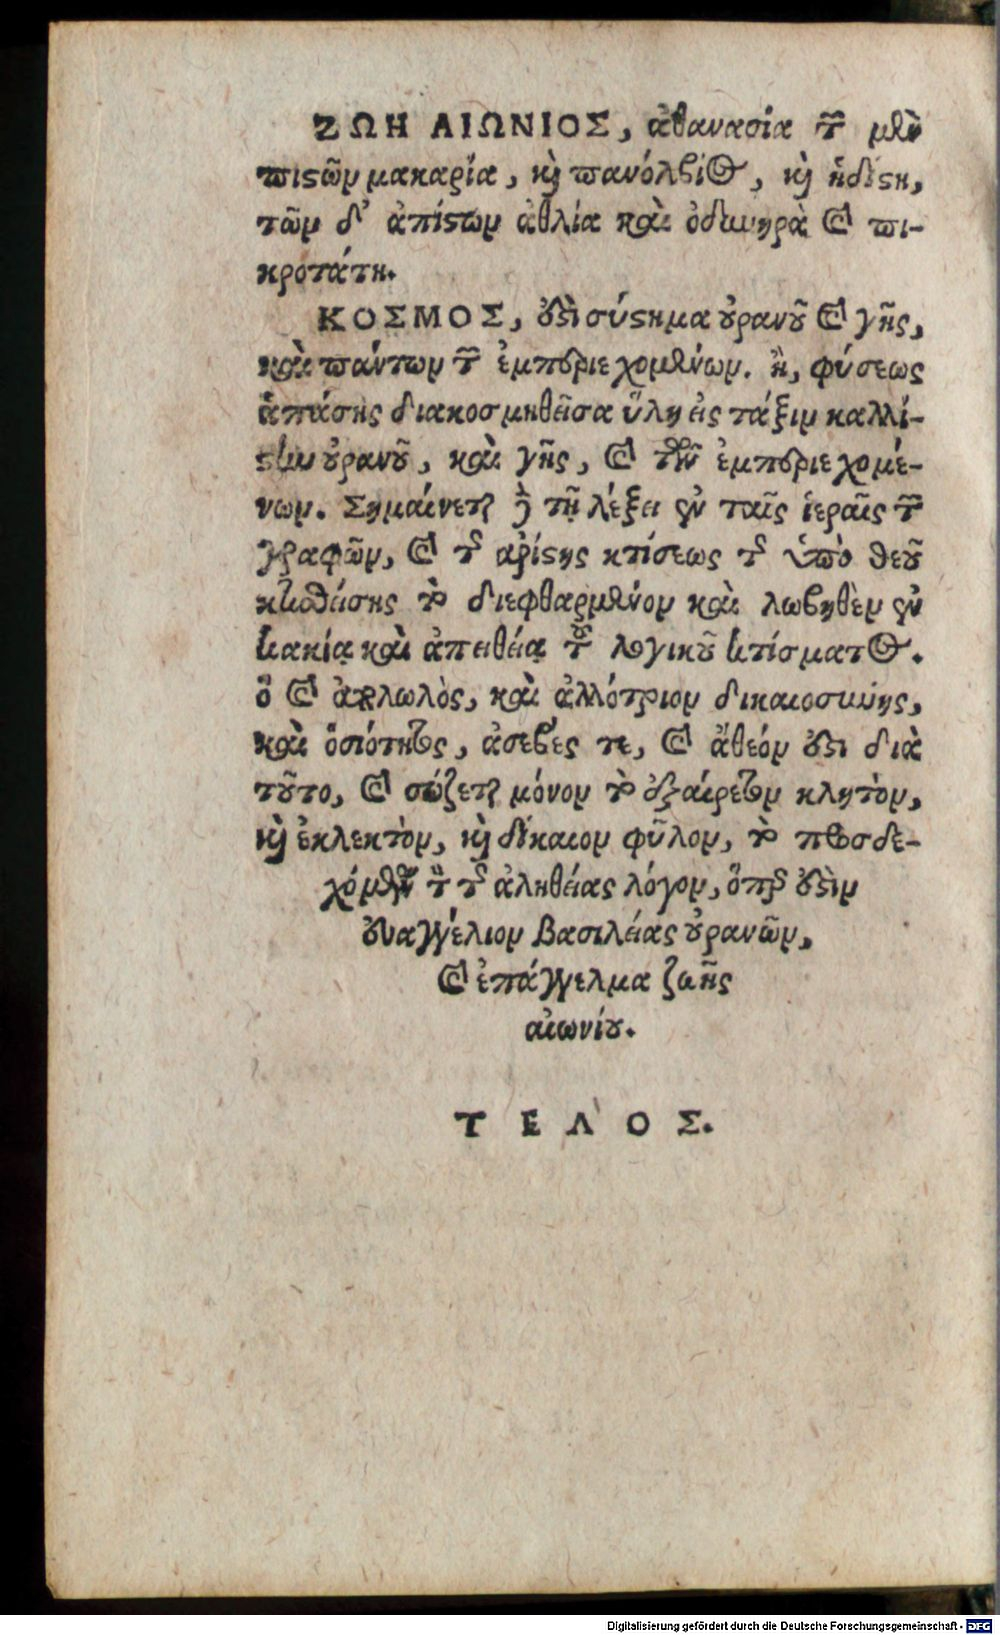 ΖΩΗ ΑΙΩΝΙΟΣ, ἀθανασία τῶν μὲν
πιστῶν μακαρία, καὶ πανόλβιος, καὶ ἡδίστη,
τῶν δ' ἀπίστων ἀθλία καὶ ὀδυνηρὰ καὶ πι-
κροτάτη.
ΚΟΣΜΟΣ, ἐστὶ σύστημα οὐρανοῦ καὶ γῆς,
καὶ πάντων τῶν ἐμπεριεχομένων. ἢ, φύσεως
ἁπάσης διακοσμηθεῖσα ὕλη εἰς τάξιν καλλί-
στην οὐρανοῦ, καὶ γῆς, καὶ τῶν ἐμπεριεχομέ-
νων. Σημαίνεται δὲ τῇ λέξει ἐν ταῖς ἱεραῖς τῶν
γραφῶν, καὶ τῆς ἀρίστης κτίσεως τῆς ὑπὸ θεοῦ
κτισθείσης τὸ διεφθαρμένον καὶ λωβηθὲν ἐν
κακίᾳ καὶ ἀπειθείᾳ τοῦ λογικοῦ κτίσματος.
ὃ καὶ ἀπολωλὸς, καὶ ἀλλότριον δικαιοσύνης,
καὶ ὁσιότητος, ἀσεβές τε, καὶ ἄθεόν ἐστι διὰ
τοῦτο, καὶ σώζεται μόνον τὸ ἐξαίρετον κλητὸν,
καὶ ἐκλεκτὸν, καὶ δίκαιον φῦλον, τὸ προσδε-
χόμενον τὸν τῆς ἀληθείας λόγον, ὅπερ ἐστὶν
εὐαγγέλιον βασιλείας οὐρανῶν,
καὶ ἐπάγγελμα ζωῆς
αἰωνίου.
ΤΕΛΟΣ.
Digitalisierung gefördert durch die Deutsche Forschungsgemeinschaft - DFG